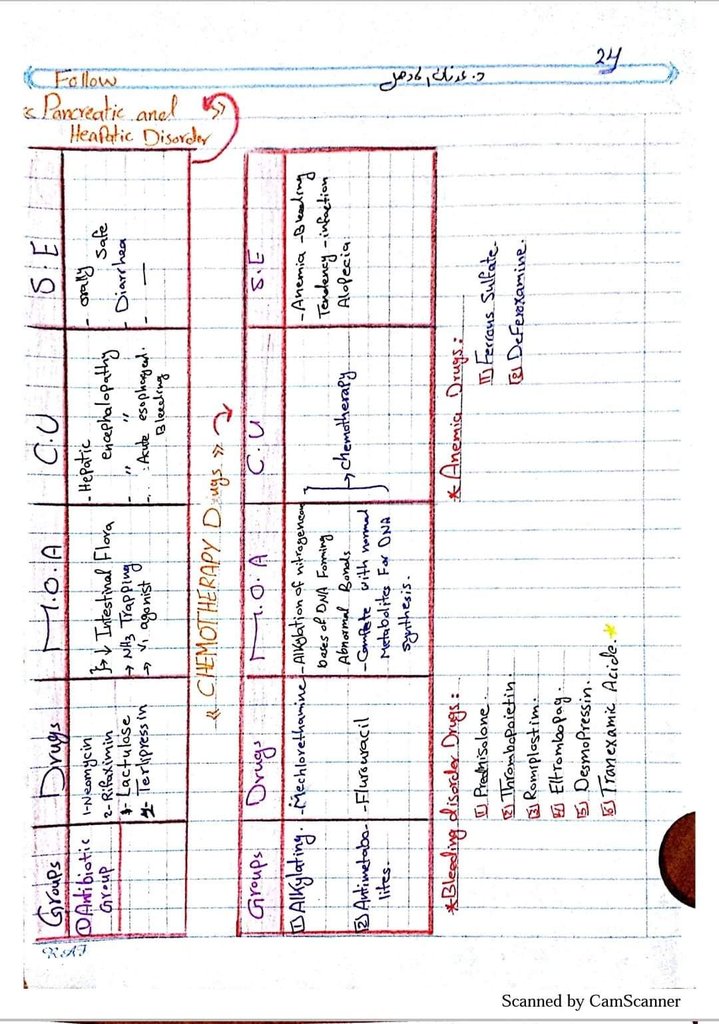 24
د. عدنان فاضل
Follow
« Pancreatic and »
Heapatic Disorder
Groups Drugs M.O.A C.U S.E
① Antibiotic Group
1-Neomycin
2-Rifaximin
3- Lactulose
4- Terlipressin
}→ ↓ Intestinal Flora
→ NH3 Trapping
→ V1 agonist
- Hepatic
encephalopathy
- " "
- Acute esophageal
Bleeding
- orally safe
- Diarrhea
- —
« CHEMOTHERAPY Drugs »
Groups Drugs M.O.A C.U S.E
1) Alkylating.
- Mechlorethamine
- Alkylation of nitrogenous
bases of DNA Forming
Abnormal Bonds
2 Antimetabo-
lites.
- Flurouracil
- Compete with normal
Metabolites For DNA
synthesis.
→ chemotherapy
- Anemia - Bleeding
Tendency - infaction
Alopecia
* Bleeding disorder Drugs:
1 Prednisolone.
2 Thrombopoietin
3 Romiplostim.
4 Eltrombopag.
5 Desmopressin.
6 Tranexamic Acide.
* Anemia Drugs:
1 Ferrous Sulfate.
2 Deferoxamine.
RAJ
Scanned by CamScanner